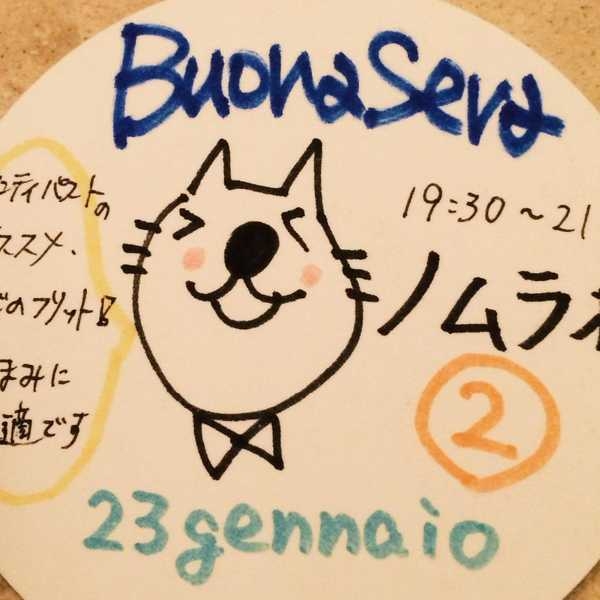 Buona Sera
ンティパストの
ススメ、
のフリット!
まみに
適です
19:30~21
ノムラ
2
23 gennaio